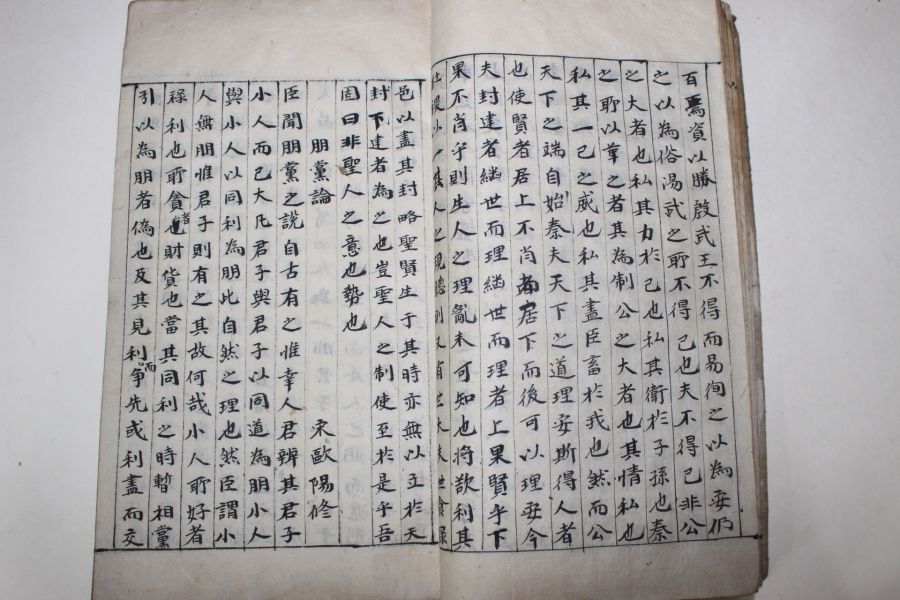 百焉資以勝殷武王不得而易徇之以為安仍
之以為俗湯武之所不得已也夫不得已非公
之大者也私其力於己也私其衛於子孫也秦
之所以革之者其為制公之大者也其情私也
私其一己之威也私其盡臣畜於我也然而公
天下之端自始秦夫天下之道理安斯得人者
也使賢者居上不肖者居下而後可以理安今
夫封建者繼世而理繼世而理者上果賢乎下
果不肖乎則生人之理亂未可知也將欲利其
社稷以一其人之視聽則又有世大夫世食祿
邑以盡其封略聖賢生于其時亦無以立於天
封下建者為之也豈聖人之制使至於是乎吾
固曰非聖人之意也勢也
朋黨論 宋歐陽修
臣聞朋黨之說自古有之惟幸人君辨其君子
小人而已大凡君子與君子以同道為朋小人
與小人以同利為朋此自然之理也然臣謂小
人無朋惟君子則有之其故何哉小人所好者
祿利也所貪者也財貨也當其同利之時暫相黨
引以為朋者偽也及其見利而爭先或利盡而交